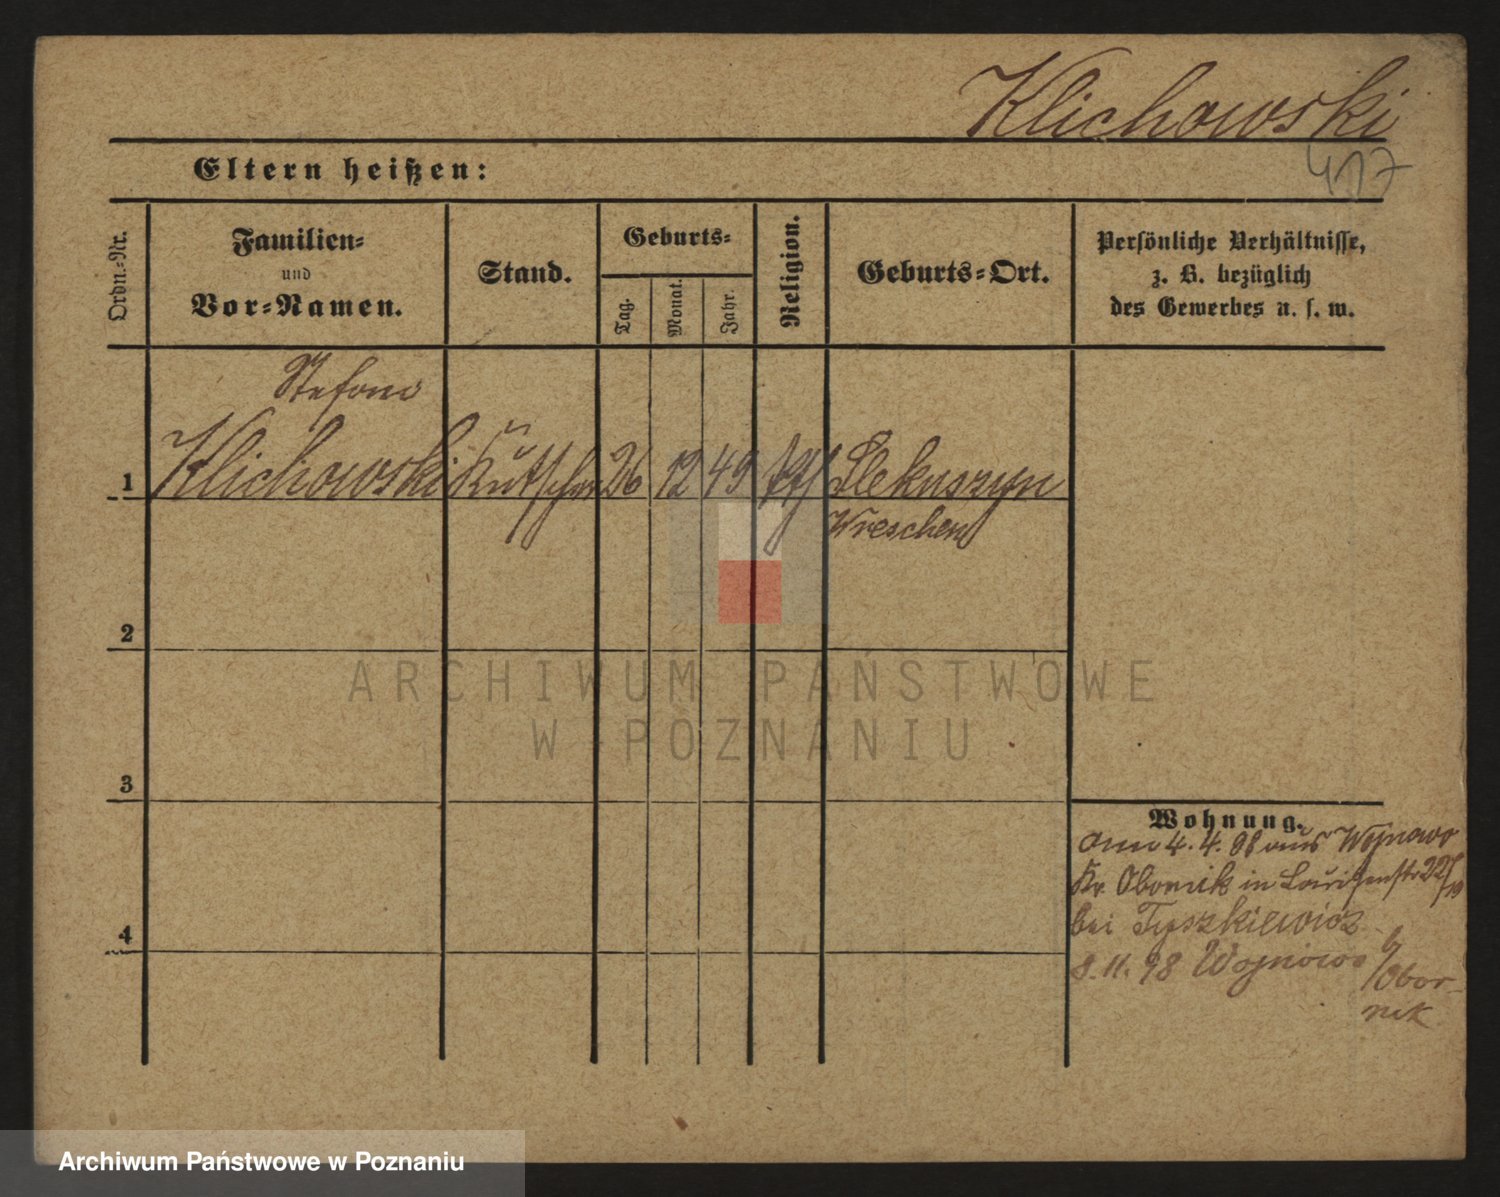 Klichowski
417
Eltern heißen:
Ordn.-Nr.
Familien-
und
Vor-Namen.
Stand.
Geburts-
Tag.
Monat.
Jahr.
Religion.
Geburts-Ort.
Persönliche Verhältnisse,
z. B. bezüglich
des Gewerbes u. s. w.
Stefan
1 Klichowski Kutscher 26 12 49 kth
Wreschen
2
ARCHIWUM PAŃSTWOWE
W POZNANIU
3
Wohnung.
4. 4. 98 aus Wojnowo
Kr. Obornik in
4
bei Tyszkiewicz
8. 11. 98 Wojnowo
b/Obor-
nik
Archiwum Państwowe w Poznaniu